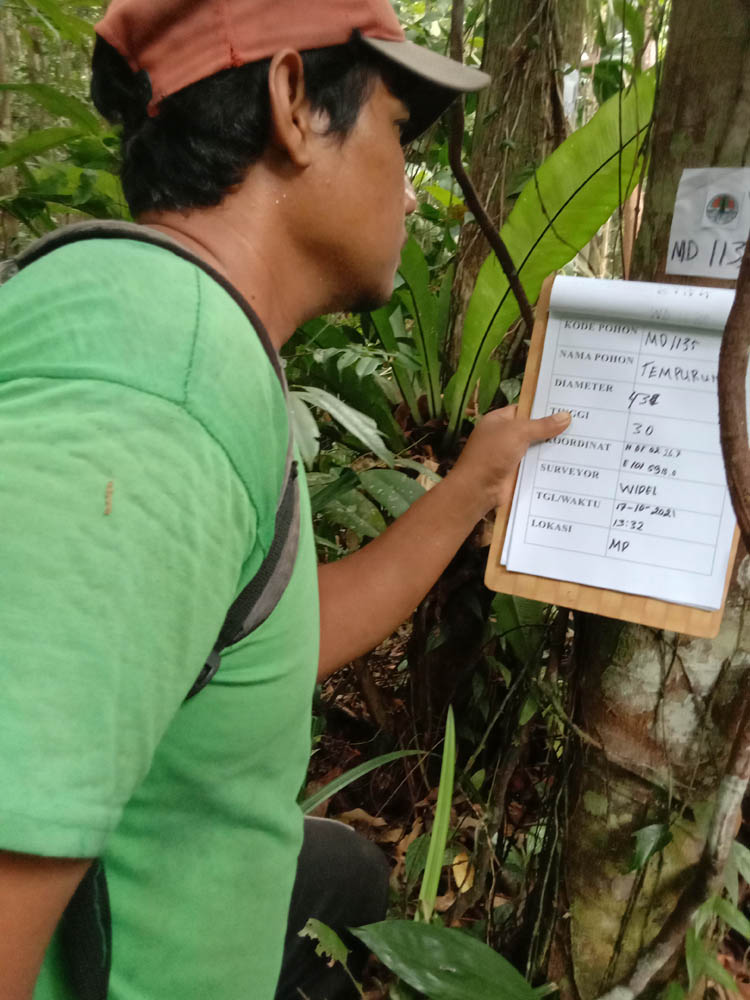 MD 113
KODE POHON MD1135
NAMA POHON TEMPURUN
DIAMETER
TINGGI 30
KOORDINAT N 01 02 267
E 101 5918.0
SURVEYOR WIDEL
TGL/WAKTU 17-10-2021
13:32
LOKASI MD